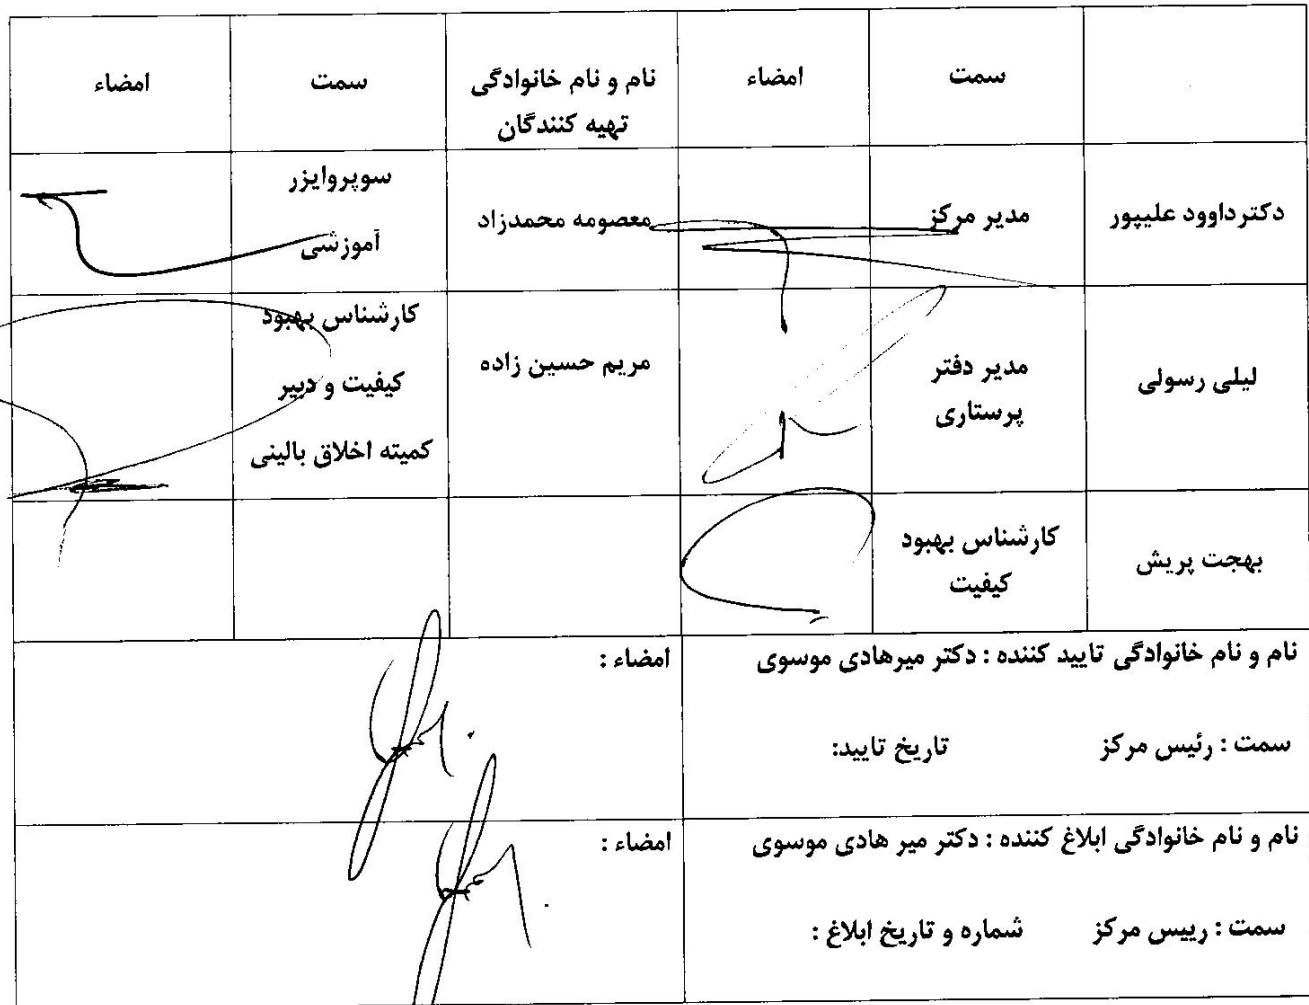 سمت
امضاء
نام و نام خانوادگی
تهیه کنندگان
سمت
امضاء
دکترداوود علیپور
مدیر مرکز
معصومه محمدزاد
سوپروایزر
آموزشی
لیلی رسولی
مدیر دفتر
پرستاری
مریم حسین زاده
کارشناس بهبود
کیفیت و دبیر
کمیته اخلاق بالینی
بهجت پریش
کارشناس بهبود
کیفیت
نام و نام خانوادگی تایید کننده : دکتر میرهادی موسوی
سمت : رئیس مرکز تاریخ تایید:
امضاء :
نام و نام خانوادگی ابلاغ کننده : دکتر میر هادی موسوی
سمت : رییس مرکز شماره و تاریخ ابلاغ :
امضاء :